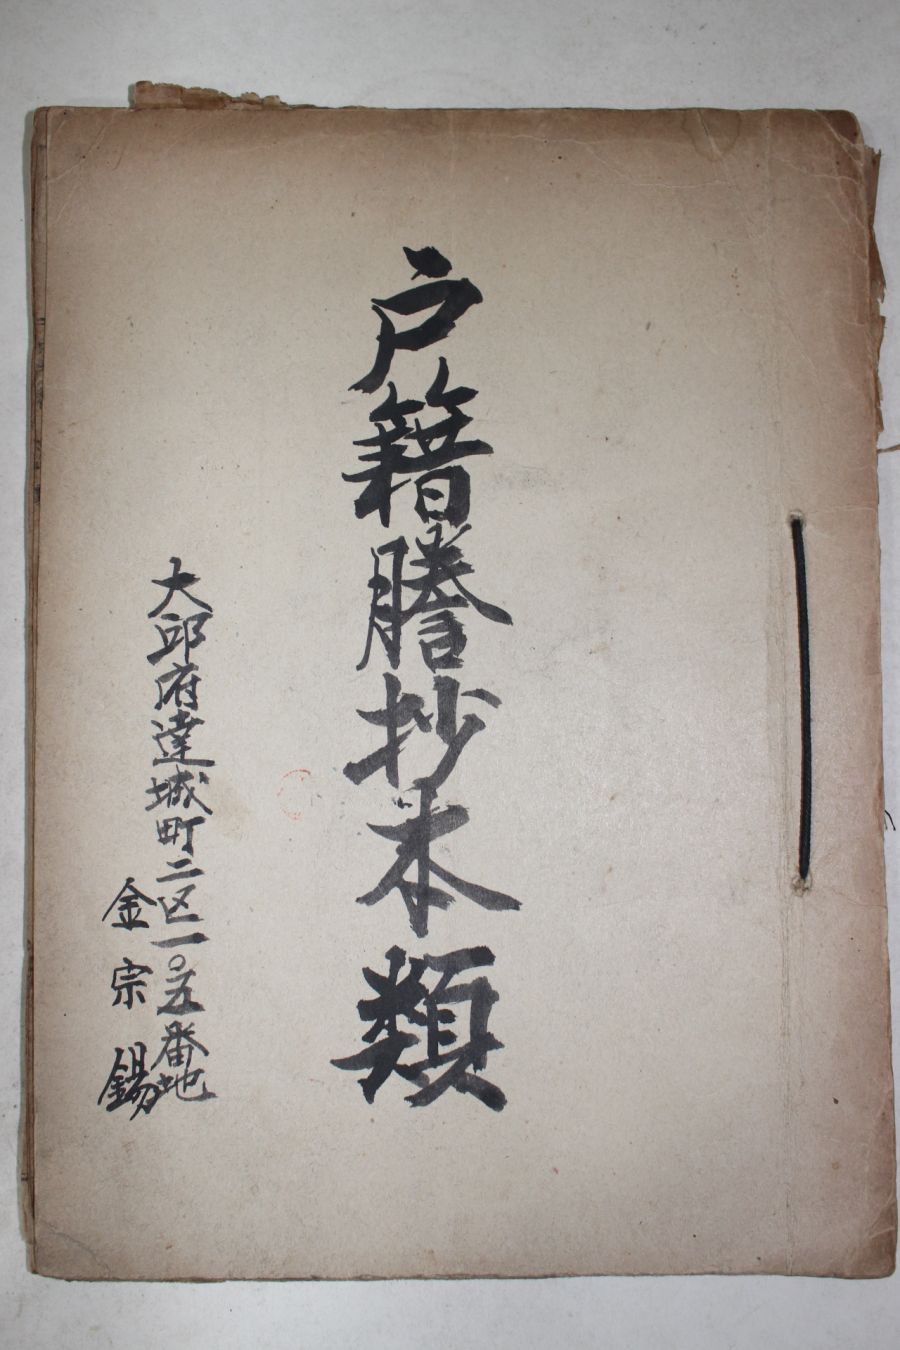 戶籍謄抄本類
大邱府達城町二区一〇五番地
金宗錫